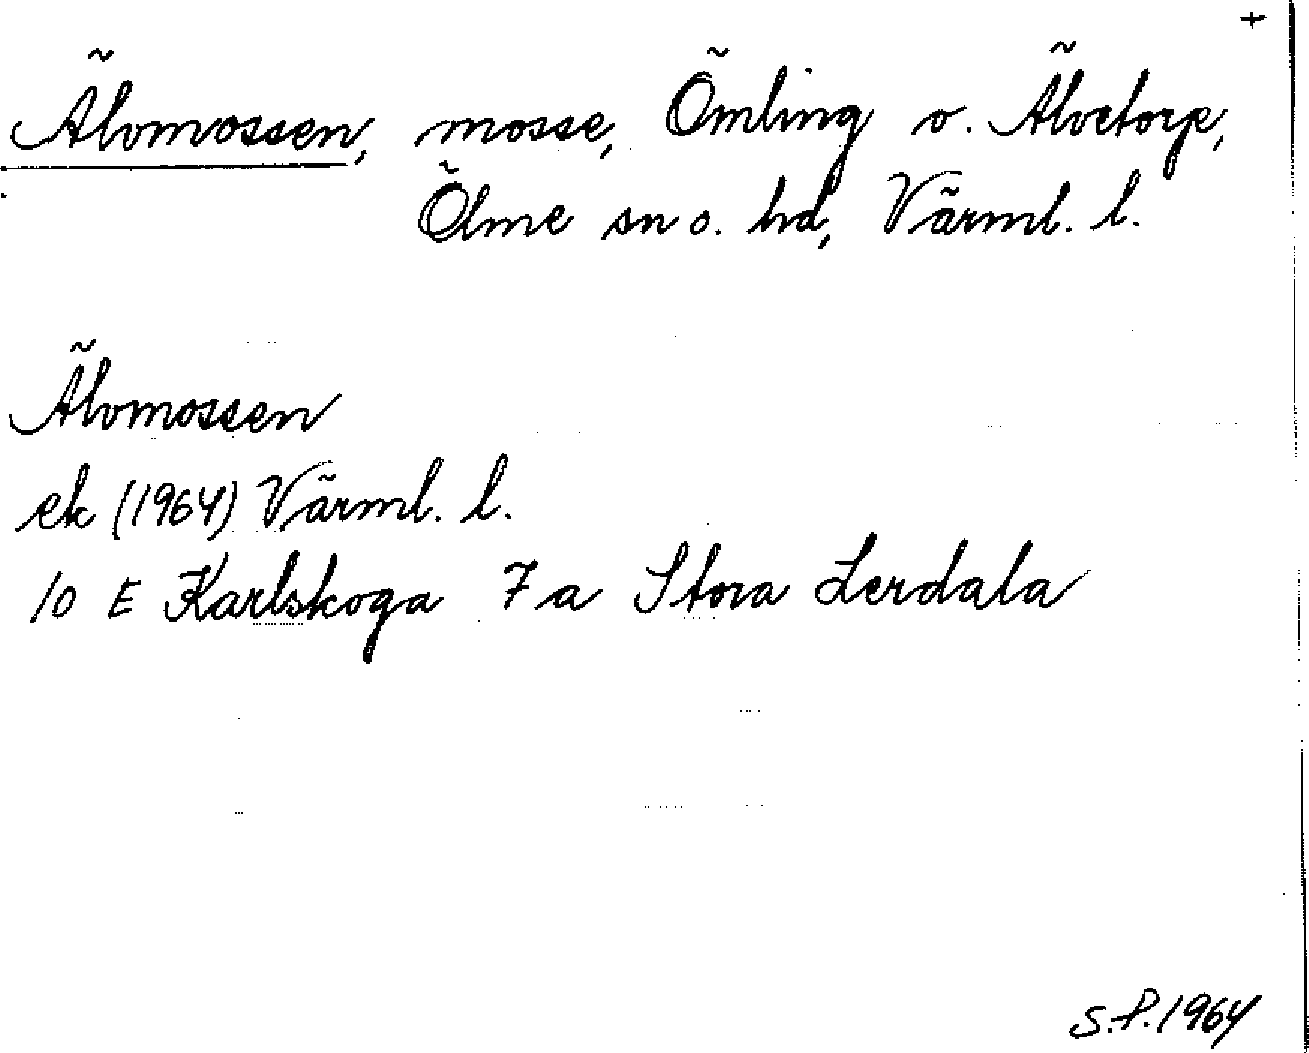 +
Älvmossen, mosse, Ömling o. Älvetorp,
Ölme sn o. hd, Värml. l.
Älvmossen
ek (1964) Värml. l.
10 E Karlskoga 7 a Stora Lerdala
S.P. 1964